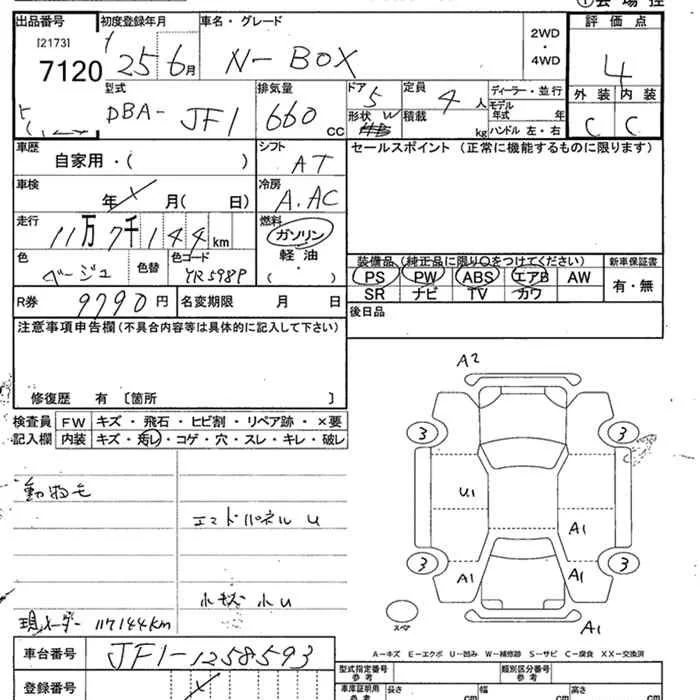 出品番号 初度登録年月 車名・グレード 2WD・4WD 評価点
[2173]
7120 25 6月 N-BOX 4
型式 排気量 ドア 定員 ディーラー・並行 外装 内装
DBA-JF1 660cc 5 4人 モデル年式 年 C C
形状 W 積載 kg ハンドル 左・右
車歴 自家用・( ) シフト AT セールスポイント (正常に機能するものに限ります)
車検 年 月( 日) 冷房 A.AC
走行 11万7千144km 燃料 ガソリン
軽油
・( )
色 ベージュ 色替 色コード YR598P
装備品 (純正品に限り○をつけてください) 新車保証書
PS PW ABS エアB AW 有・無
SR ナビ TV カワ
R券 9790円 名変期限 月 日 後日品
注意事項申告欄(不具合内容等は具体的に記入して下さい)
修復歴 有 〔箇所 〕
検査員 FW キズ・飛石・ヒビ割・リペア跡・×要
記入欄 内装 キズ・汚レ・コゲ・穴・スレ・キレ・破レ
動物毛
エンドパネル U
小U
現メーター 117144km
A2
3 3
U1
A1
A1 A1
3 3
スペア
A1
A-キズ E-エクボ U-凹み W-補修跡 S-サビ C-腐食 XX-交換済
車台番号 JF1-1258593
型式指定番号 参考 類別区分番号 参考
登録番号
車庫証明用 参考 長さ cm 幅 cm 高さ cm